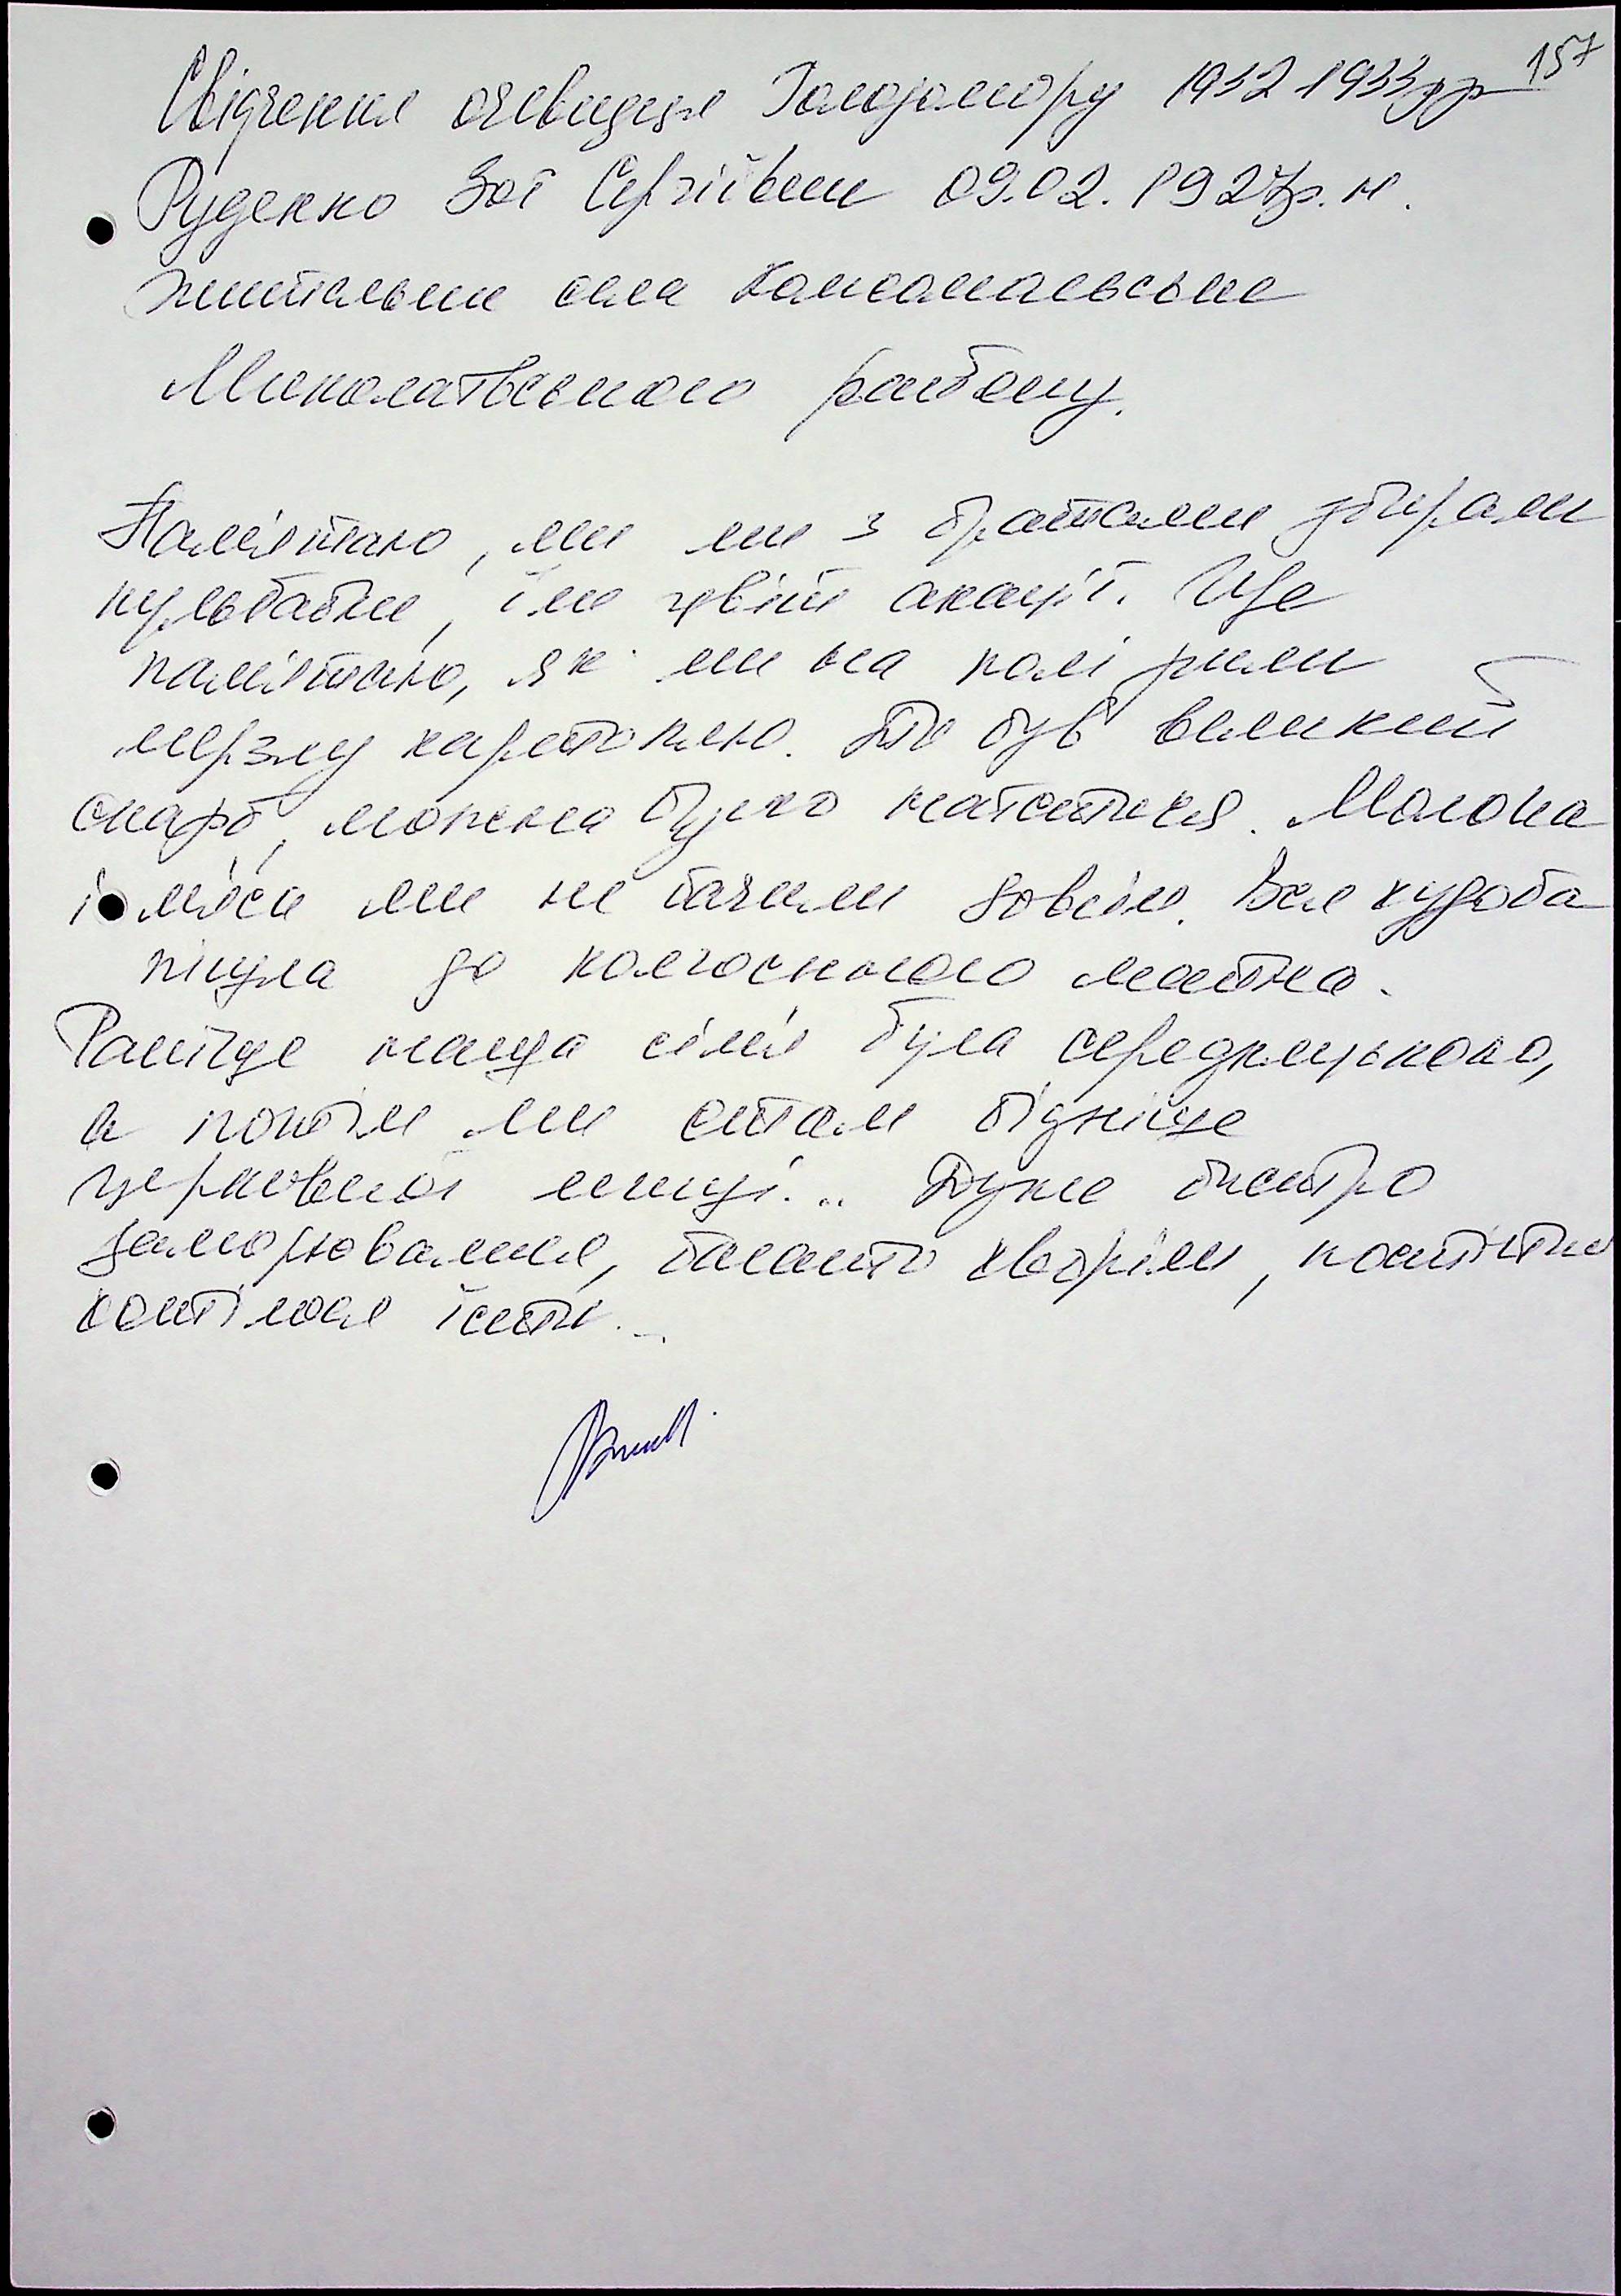 157
Свідчення очевидця Голодомору 1932 1933рр
Руденко Зої Сергіївни 09.02.1927р.н.
жительки села Комсомольське
Миколаївського району.
Пам'ятаю, ми з братами збирали
кульбабки, їли цвіт акації. Ще
пам'ятаю, як ми на полі рили
мерзлу картоплю. То був великий
скарб, можна було наїстися. Молока
і м'яса ми не бачили зовсім. Вся худоба
пішла до колгоспного майна.
Раніше наша сім'я була середняцькою,
а потім ми стали бідніше
церковної миші... Дуже бистро
заморювалися, багато хворіли, постійно
хотілося їсти...